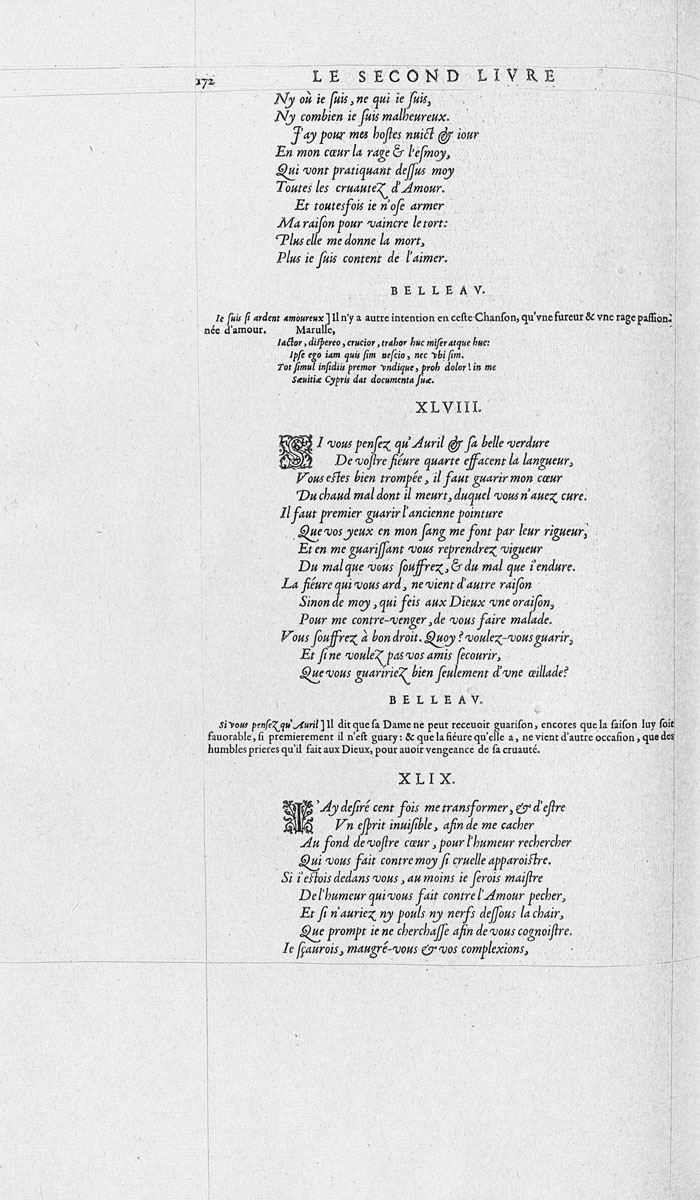 172 LE SECOND LIVRE
Ny où ie ſuis, ne qui ie ſuis,
Ny combien ie ſuis malheureux.
J'ay pour mes hoſtes nuict & iour
En mon cœur la rage & l'eſmoy,
Qui vont pratiquant deſſus moy
Toutes les cruautez d'Amour.
Et toutesfois ie n'oſe armer
Ma raiſon pour vaincre le tort:
Plus elle me donne la mort,
Plus ie ſuis content de l'aimer.
BELLEAV.
Ie ſuis ſi ardent amoureux ] Il n'y a autre intention en ceſte Chanſon, qu'vne fureur & vne rage paſſion-
née d'amour. Marulle,
Iactor, diſpereo, crucior, trahor huc miſer atque huc:
Ipſe ego iam quis ſim neſcio, nec vbi ſim.
Tot ſimul inſidiis premor vndique, proh dolor! in me
Sæuitiæ Cypris dat documenta ſuæ.
XLVIII.
SI vous penſez qu'Auril & ſa belle verdure
De voſtre fiéure quarte effacent la langueur,
Vous eſtes bien trompée, il faut guarir mon cœur
Du chaud mal dont il meurt, duquel vous n'auez cure.
Il faut premier guarir l'ancienne pointure
Que vos yeux en mon ſang me font par leur rigueur,
Et en me guariſſant vous reprendrez vigueur
Du mal que vous ſouffrez, & du mal que i'endure.
La fiéure qui vous ard, ne vient d'autre raiſon
Sinon de moy, qui feis aux Dieux vne oraiſon,
Pour me contre-venger, de vous faire malade.
Vous ſouffrez à bon droit. Quoy? voulez-vous guarir,
Et ſi ne voulez pas vos amis ſecourir,
Que vous guaririez bien ſeulement d'vne œillade?
BELLEAV.
Si vous penſez qu'Auril ] Il dit que ſa Dame ne peut receuoir guariſon, encores que la ſaiſon luy ſoit
fauorable, ſi premierement il n'eſt guary: & que la fiéure qu'elle a, ne vient d'autre occaſion, que des
humbles prieres qu'il fait aux Dieux, pour auoir vengeance de ſa cruauté.
XLIX.
I'Ay deſiré cent fois me transformer, & d'eſtre
Vn eſprit inuiſible, afin de me cacher
Au fond de voſtre cœur, pour l'humeur rechercher
Qui vous fait contre moy ſi cruelle apparoiſtre.
Si i'eſtois dedans vous, au moins ie ſerois maiſtre
De l'humeur qui vous fait contre l'Amour pecher,
Et ſi n'auriez ny pouls ny nerfs deſſous la chair,
Que prompt ie ne cherchaſſe afin de vous cognoiſtre.
Ie ſçaurois, maugré-vous & vos complexions,